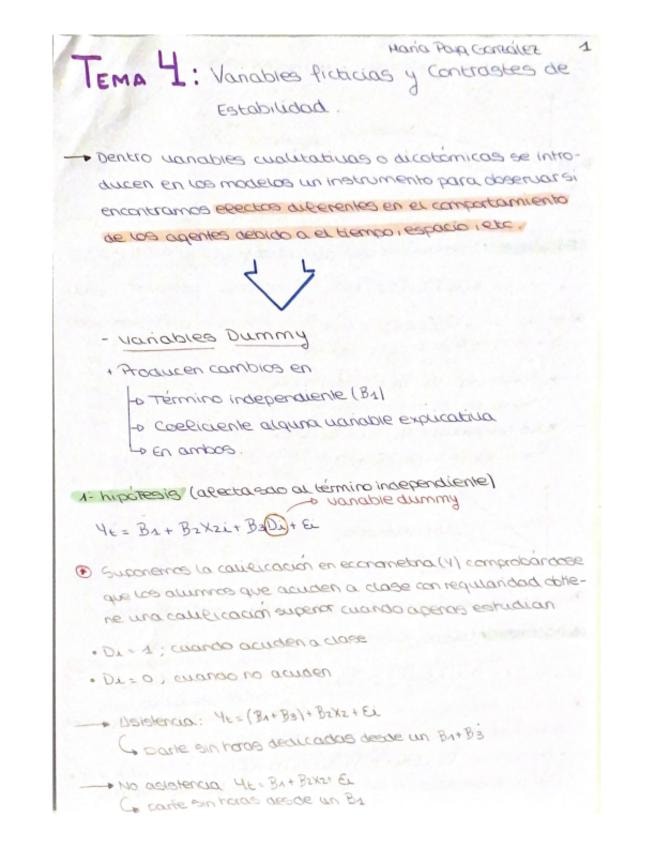 María Paya González 1
TEMA 4: Variables ficticias y Contrastes de
Estabilidad.
→ Dentro variables cualitativas o dicotómicas se intro-
ducen en los modelos un instrumento para observar si
encontramos efectos diferentes en el comportamiento
de los agentes debido a el tiempo, espacio, etc.
- variables Dummy
+ Producen cambios en
→ Término independiente (B1)
→ Coeficiente alguna variable explicativa
→ En ambos.
1- hipótesis (afectando al término independiente)
→ variable dummy
Yt = B1 + B2X2i + B3Di + Ei
* Suponemos la calificación en econometría (Y) comprobándose
que los alumnos que acuden a clase con regularidad obtie-
ne una calificación superior cuando apenas estudian
• Di = 1; cuando acuden a clase
• Di = 0; cuando no acuden
→ Asistencia: Yt = (B1 + B3) + B2X2 + Ei
↳ parte sin horas dedicadas desde un B1 + B3
→ No asistencia Yt = B1 + B2X2 + Ei
↳ parte sin horas desde un B1